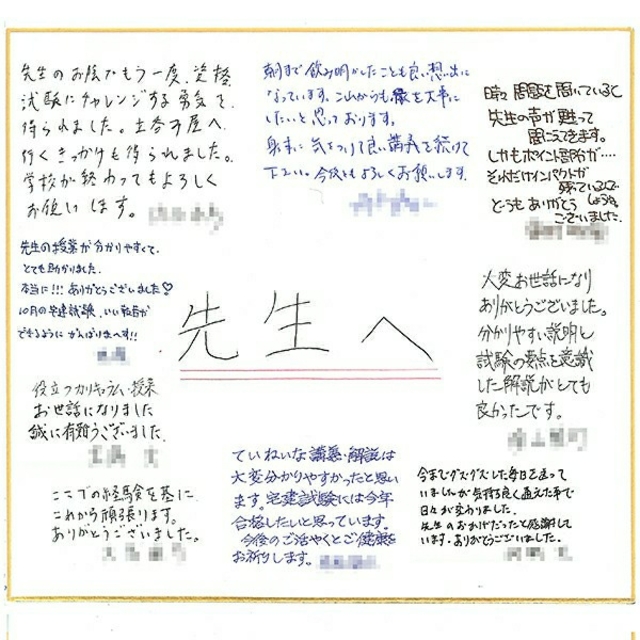 先生のお陰でもう一度、資格
試験にチャレンジする勇気を
得られました。土巻で屋へ
行くきっかけも得られました。
学校が終わってもよろしく
お願いします。
朝まで飲み明かしたことも良い想い出に
なっています。これからも縁を大事に
したいと思っております。
身体に気をつけて良い講義を続けて
下さい。今後ともよろしくお願いします。
時々問題を聞いていると
先生の声が甦って
聞こえてきます。
しかもポイント部分が…
それだけインパクトが
残っているんでしょうね
どうもありがとうございました。
先生の授業が分かりやすくて、
とても助かりました。
本当に!!!ありがとうございました♡
10月の宅建試験、いい報告が
できるようにがんばりまーす!!
先生へ
大変お世話になり
ありがとうございました。
分かりやすい説明と
試験の要点を意識
した解説がとても
良かったです。
役立つカリキュラム・授業
お世話になりました
誠に有難うございました。
ここでの経験を基に
これから頑張ります。
ありがとうございました。
ていねいな講義・解説は
大変分かりやすかったと思い
ます。宅建試験には今年
合格したいと思っています。
今後のご活やくとご健勝を
お祈りします。
今までグズグズした毎日を送って
いましたが気持ち良く通えた事で
日々が変わりました。
先生のおかげだったと感謝して
います。ありがとうございました。